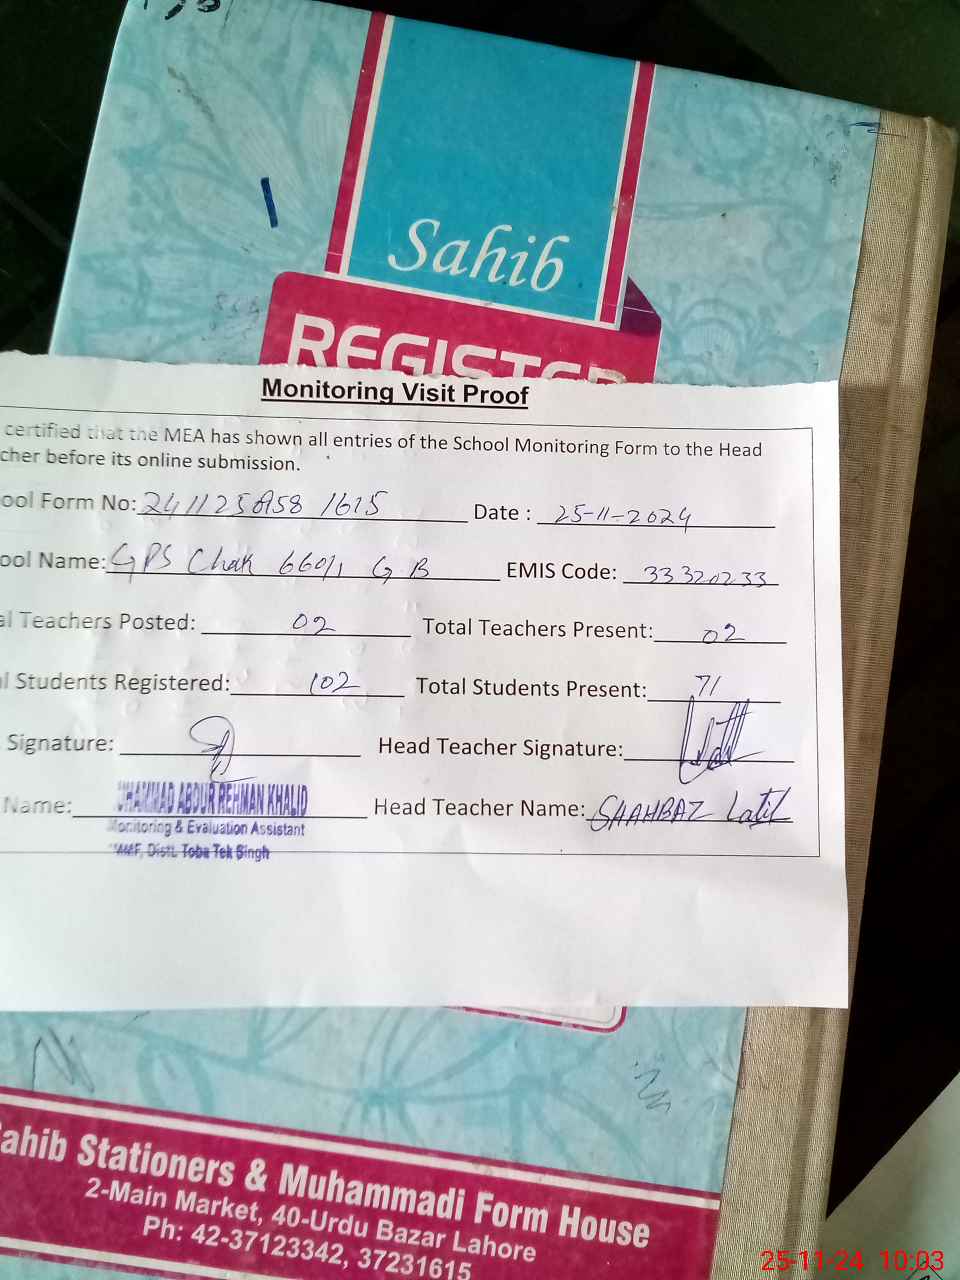 Sahib
REGISTER
Monitoring Visit Proof
certified that the MEA has shown all entries of the School Monitoring Form to the Head
cher before its online submission.
ool Form No: 241125A58 1615 Date : 25-11-2024
ool Name: GPS Chak 660/1 GB EMIS Code: 33320233
al Teachers Posted: 02 Total Teachers Present: 02
al Students Registered: 102 Total Students Present: 71
Signature: Head Teacher Signature:
Name: UHAMMAD ABDUR REHMAN KHALID Head Teacher Name: SHAHBAZ Latif
Monitoring & Evaluation Assistant
Distt. Toba Tek Singh
ahib Stationers & Muhammadi Form House
2-Main Market, 40-Urdu Bazar Lahore
Ph: 42-37123342, 37231615
25-11-24 10:03